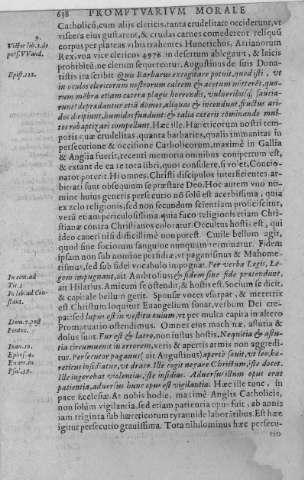 638 PROMPTVARIVM MORALE
Catholicū, cum alijs clericis, tanta crudelitate occiderunt, vt
viscera eius gustarent, & crudas carnes comederent reliquū
corpus per plateas vrbis trahentes Hunerichos, Arrianorum
Rex, vna vice clericos 4976 in desertum ablegant, & Iniecis
prohibitū, ne clerim se portetur. Augustinus de suis Dona-
tistis ita scribit Quis Barbarus excogitare potuit, quod isti, vt
in oculos clericorum nostrorum calcem & acetum mitterēt, quo-
rum mēbra etiam cætera plagis horrendis, vulneribusq; saucia-
runt: depradantur etiā domos, aliquas & incendunt, fructus ari-
dos diripiunt, humidos fundunt: & talia cæteris comminando mul-
tos rebaptizari compellunt. Hæc ille. Hæreticorum nostri tem-
poris quæ crudelitas, quanta barbaries, qualis immanitas in
persecutione & occisione Catholicorum, maximè in Gallia
& Anglia fuerit, recenti memoria omnibus compertum est,
& extant de ea re tota libri, quos consulere, si vo et, Conciona-
tor poterit. Hi omnes, Christi discipulos interficientes ar-
bitrati sunt obsequium se præstare Deo. Hoc autem vno no-
mine huius generis persecutio nō solū est acerbissima, quia
ex zelo religionis, sed non secundum scientiam proficiscitur,
verū etiam periculosissima, quia fuco religionis etiam Chri-
stianæ contra Christianos coloratur. Occultus hostis est, qui
ideo caueri nisi difficillimè non potest. Ciuile bellum agit,
quod siue sociorum sanguine nunquam terminatur. Fidem
ipsam non sub nomine perfidiæ, vt paganismus & Mahome-
tismus, sed sub fidei vocabulo impugnat. Per verba Legis, Le-
gem impugnant, ait Ambrosius, & fidem sine fide prætendunt,
ait Hilarius. Amicum se ostendit, & hostis est. Socium se dicit,
& capitale bellum gerit. Sponsæ voces vsurpat, & meretrix
est Christum loquitur Euangelium sonat, verbum Dei cre-
pat: sed lupus est in vestitu ouium, vt per multa capita in altero
Promptuario ostendimus. Omnes eius machinæ, astutia &
dolus sunt. Fur est & latro, non iustus hostis. Nequitia & astu-
tia circumuenit in errorem, veris & apertis armis non aggredi-
tur. Persecutor paganus (ait Augustinus) apertè sæuit, vt leo, hæ-
reticus insidiatur, vt draco. Ille cogit negare Christum, iste docet.
Ille ingerebat violentias, iste insidias. Aduersus illum opus erat
patientia, aduersus hunc opus est vigilantia. Hæc ille tunc, in
pace Ecclesiæ. At nobis hodie, maximè Anglis Catholicis,
non solùm vigilantia, sed etiam patientia opus fuit, ab annis
iam triginta sub hæreticorum tyrannide laborantibus. Est hæc
igitur persecutio grauissima. Tota nihilominus hæc persecu-
tio
9.
Victor lib. 2. de
perS. VVand.
Epist. 122.
In com. ad
Tit. 3.
In lib. ad Con-
stant.
Ioan. 10.
Ephes. 4.
Psal. 38.